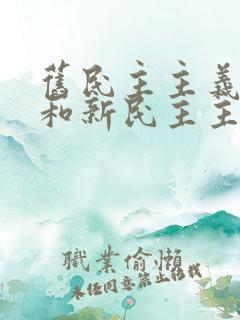 舊民主主義
和新民主主
職業偷懶
未經同意禁止轉載